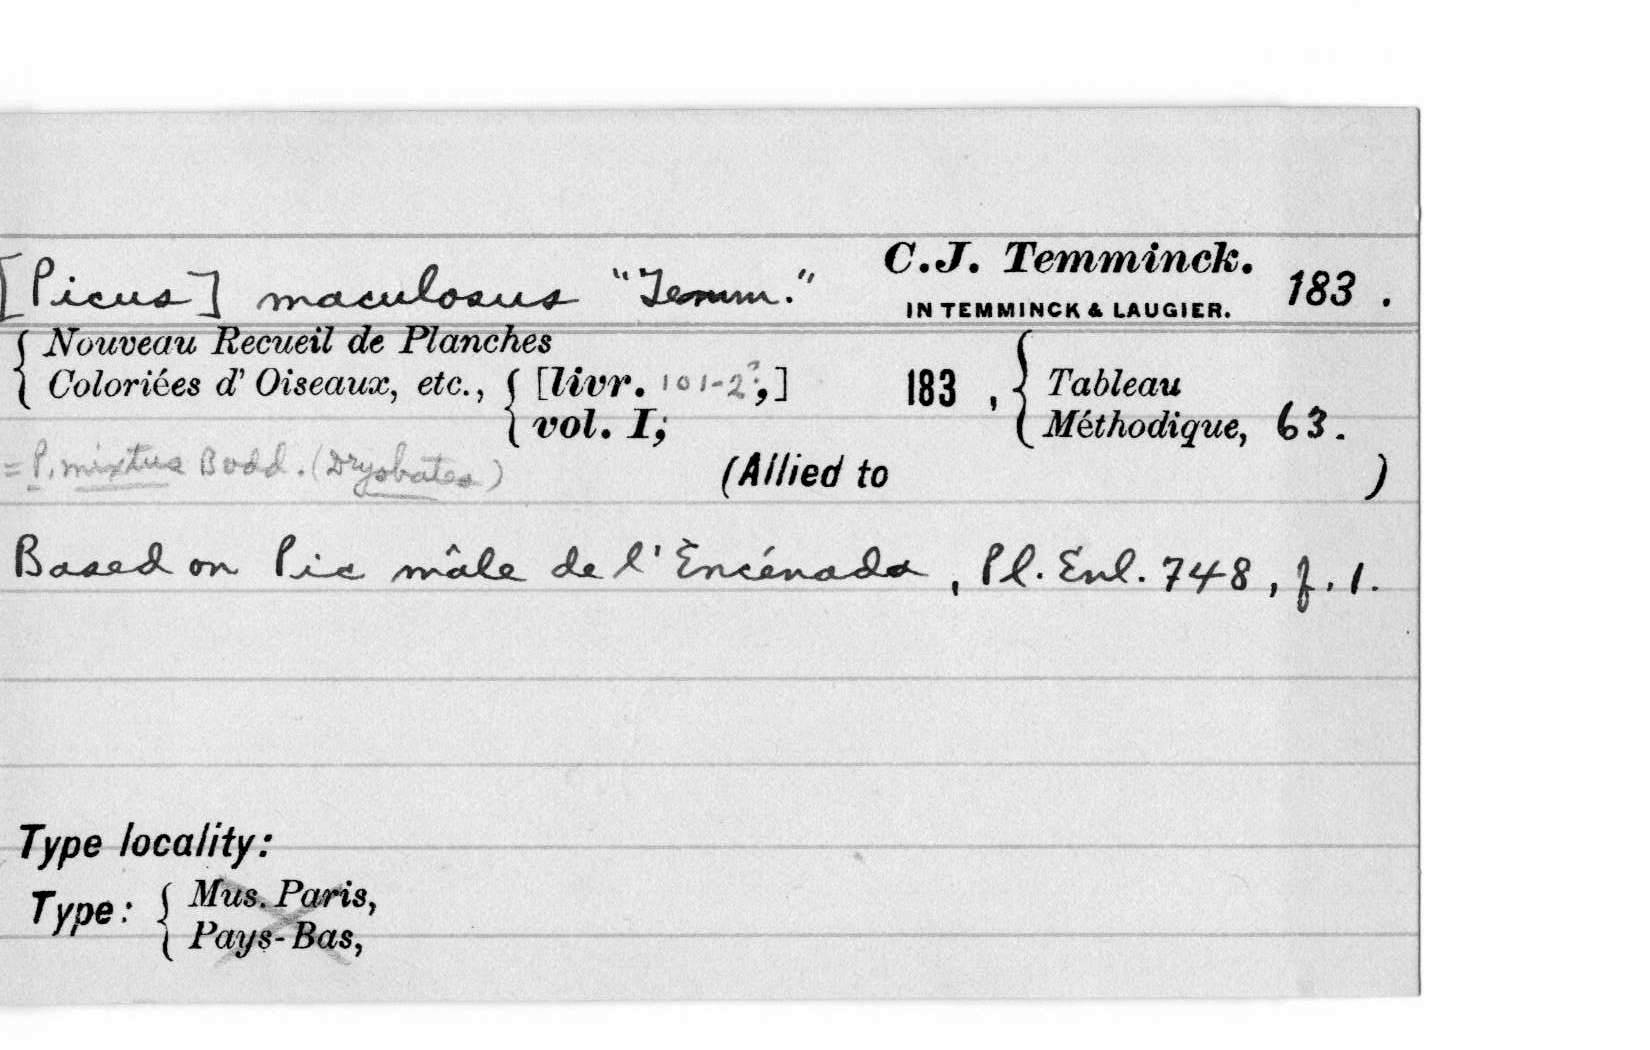 [Picus] maculosus "Temm." C.J. Temminck. 183 .
IN TEMMINCK & LAUGIER.
Nouveau Recueil de Planches
Coloriées d' Oiseaux, etc., [livr. 101-2?,] 183 , Tableau
vol. I; Méthodique, 63.
= P. mixtus Bodd. (Dryobates) (Allied to )
Based on Pic mâle de l' Encénada, Pl. Enl. 748, f. 1.
Type locality:
Type: Mus. Paris,
Pays-Bas,